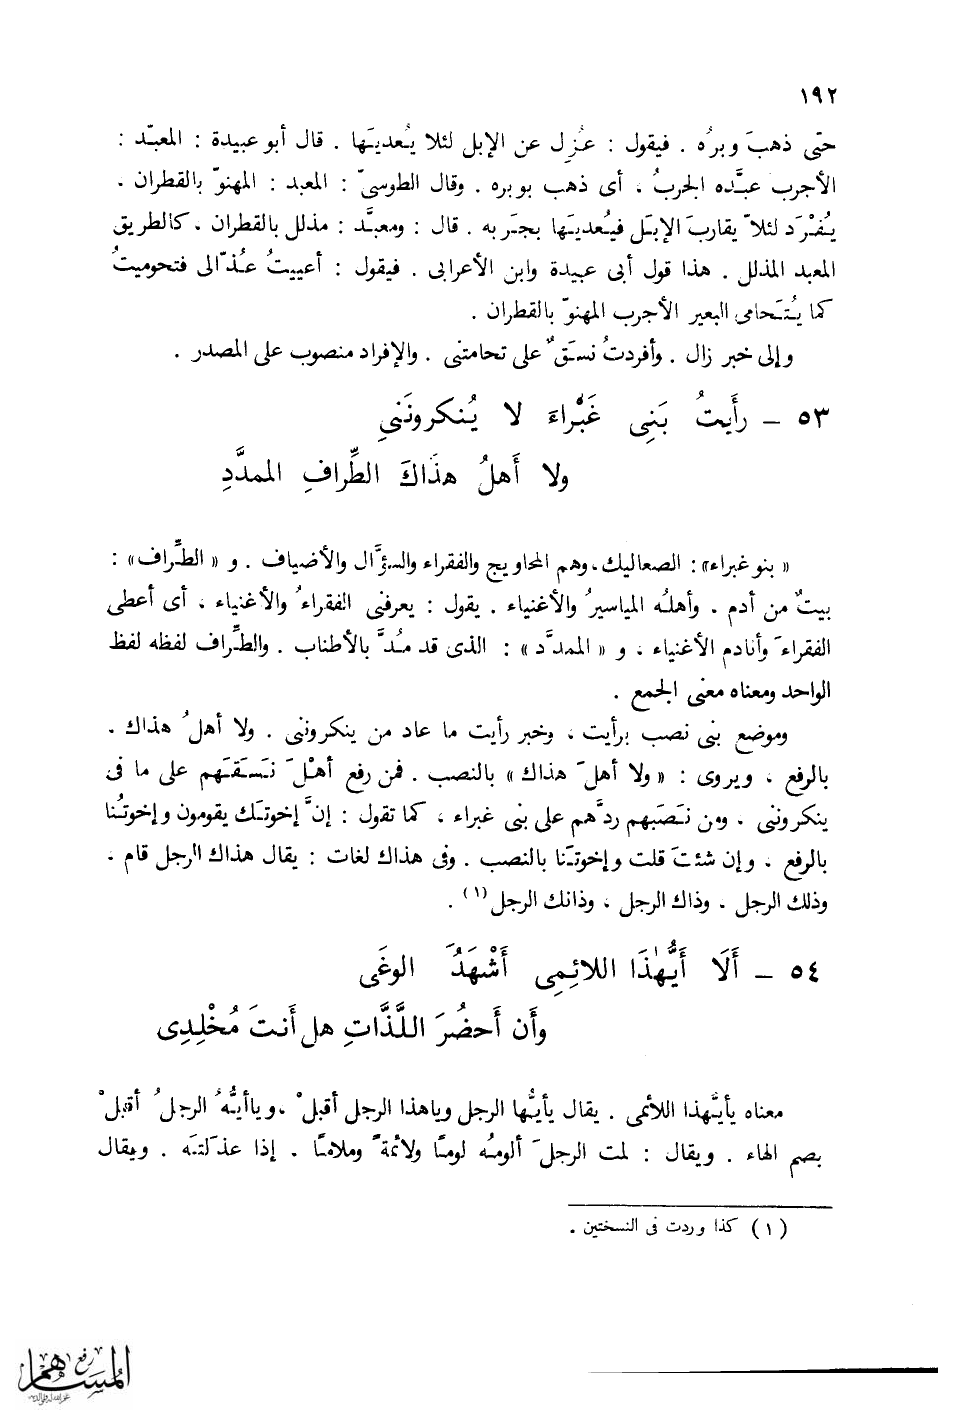 ١٩٢
حتى ذهبَ وبرُه . فيقول : عُزِل عن الإبل لئلا يُعديَها . قال أبو عبيدة : المعبّد :
الأجرب عبَّده الجربُ ، أى ذهب بوبره . وقال الطوسىّ : المعبد : المهنوّ بالقطران .
يُفْرَد لئلاّ يقاربَ الإبلَ فيُعديَها بجرَبه . قال : ومعبَّد : مذلل بالقطران ، كالطريق
المعبد المذلل . هذا قول أبى عبيدة وابن الأعرابى . فيقول : أعييتُ عُذّالى فتحوميتُ
كما يُتَحامى البعير الأجرب المهنوّ بالقطران .
وإلى خبر زال . وأفردتُ نسَقٌ على تحامتنى . والإفراد منصوب على المصدر .
٥٣ – رأَيتُ بَنِى غَبْراءَ لا يُنكرونَنِى
ولا أَهلُ هذَاكَ الطِّرافِ الممدَّدِ
« بنو غبراء» : الصعاليك ، وهم المحاويج والفقراء والسؤَّال والأضياف . و « الطِّراف» :
بيتٌ من أدم . وأهلُه المياسيرُ والأغنياء . يقول : يعرفنى الفقراءُ والأغنياء ، أى أعطى
الفقراءَ وأنادم الأغنياء ، و « الممدَّد » : الذى قد مُدَّ بالأطناب . والطِّراف لفظه لفظ
الواحد ومعناه معنى الجمع .
وموضع بنى نصب برأيت ، وخبر رأيت ما عاد من ينكروننى . ولا أهلُ هذاك .
بالرفع ، ويروى : « ولا أهلَ هذاك » بالنصب . فمن رفع أهْلَ نَسَقَهم على ما فى
ينكروننى . ومن نَصَبهم ردَّهم على بنى غبراء ، كما تقول : إنَّ إخوتَك يقومون وإخوتُنا
بالرفع ، وإن شئتَ قلت وإخوتَنا بالنصب . وفى هذاك لغات : يقال هذاك الرجل قام ،
وذلك الرجل ، وذاك الرجل ، وذانك الرجل(١) .
٥٤ – أَلَا أَيُّهٰذَا اللائِمِى أَشْهَدُ َ الوغَى
وأَن أَحضُرَ اللَّذَّاتِ هل أَنتَ مُخْلِدِى
معناه يأيُّهذا اللائمى . يقال يأيُّها الرجل وياهذا الرجل أقبلْ ، وياأيُّهُ الرجلُ أقبلْ
بصم الهاء . ويقال : لمت الرجلَ ألومُه لومًا ولائمةً وملامًا . إذا عذَلتَه . ويقال
(١) كذا وردت فى النسختين .